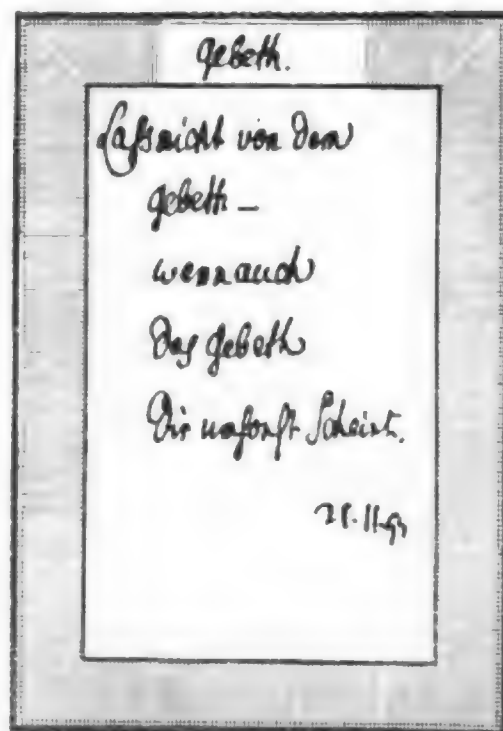 gebeth.
Lass nicht von dem
gebeth —
wenn auch
das gebeth
Dir umsonst Scheint.